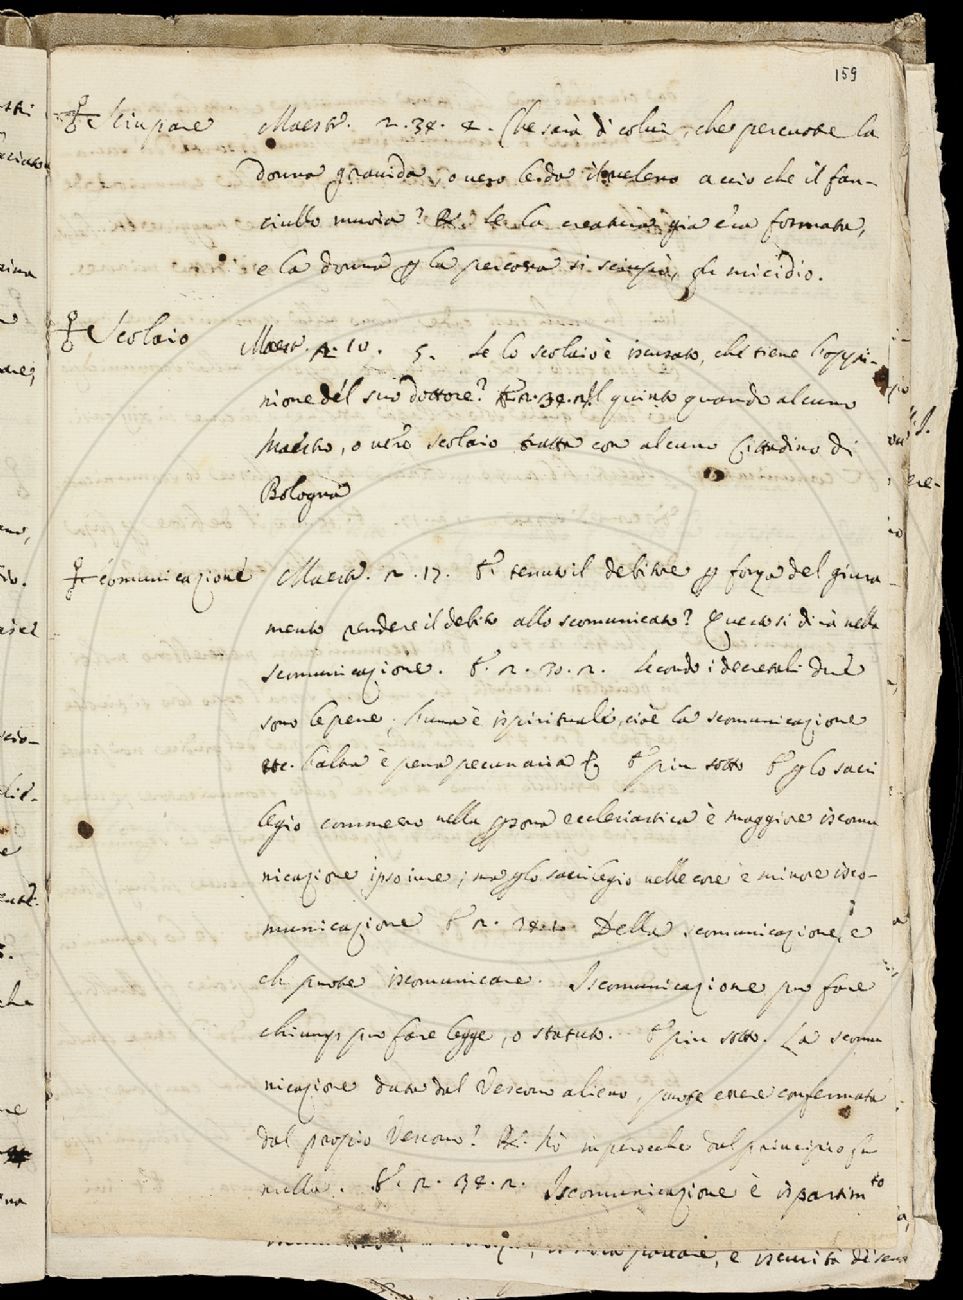 159
Sciupare Maestr. 2. 38. 4. Che sarà di colui, che percuote la
donna gravida, o vero le da il veleno accio che il fan-
ciullo muoia? R. Se la creatura già era formata,
e la donna p la percossa si sciupò, fu micidio.
Scolaio Maestr. 2. 10. 5. Se lo scolaio è iscusato, che tiene l'oppi-
nione del suo dottore? il quinto quando alcuno
Maestro, o vero scolaio tratta con alcuno Cittadino di
Bologna
Scomunicazione Maestr. 2. 17. E tenuto il debitore p forza del giura-
mento rendere il debito allo scomunicato? Questo si dirà nella
scomunicazione. E. 2. 30. 2. Secondo i decretali due
sono le pene; l'una è ispirituale, cioè la scomunicazione
etc. l'altra è pena pecuniaria E più sotto E p lo sacri
legio commesso nella psona ecclesiastica è maggiore iscomu
nicazione ipso iure; ma p lo sacrilegio nelle cose è minore isco-
municazione E 2. 38. Della scomunicazione, e
ch puote iscomunicare. Iscomunicazione può fare
chiunq può fare legge, o statuto. E più sotto. La scomu
nicazione data dal Vescovo alieno, puote essere confermata
dal propio Vescovo? R. Nò imperocche dal principio fu
nulla. E. 2. 38. 2. Iscomunicazione è ispartim.to
e iscurità di